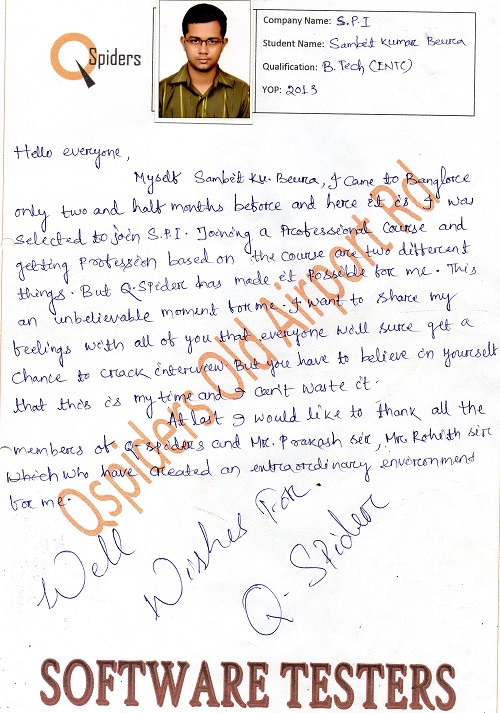 Q Spiders
Company Name: S.P.I
Student Name: Sambit Kumar Beura
Qualification: B.Tech (ENTC)
YOP: 2013
Hello everyone,
Myself Sambit Ku. Beura, I came to Banglore
only two and half months before and here it is I was
selected to join S.P.I. Joining a Professional Course and
getting Profession based on the course are two different
things. But Q-Spider has made it Possible for me. This
an unbelievable moment for me. I want to share my
feelings with all of you that everyone will sure get a
Chance to crack interview. But you have to believe in yourself
that this is my time and I can't waste it.
At last I would like to thank all the
members of Q-spiders and Mr. Prakash sir, Mr. Rohith sir
which who have created an extraordinary environment
for me.
Well Wishes For
Q-Spider
Qspiders Old Airport Rd.
SOFTWARE TESTERS